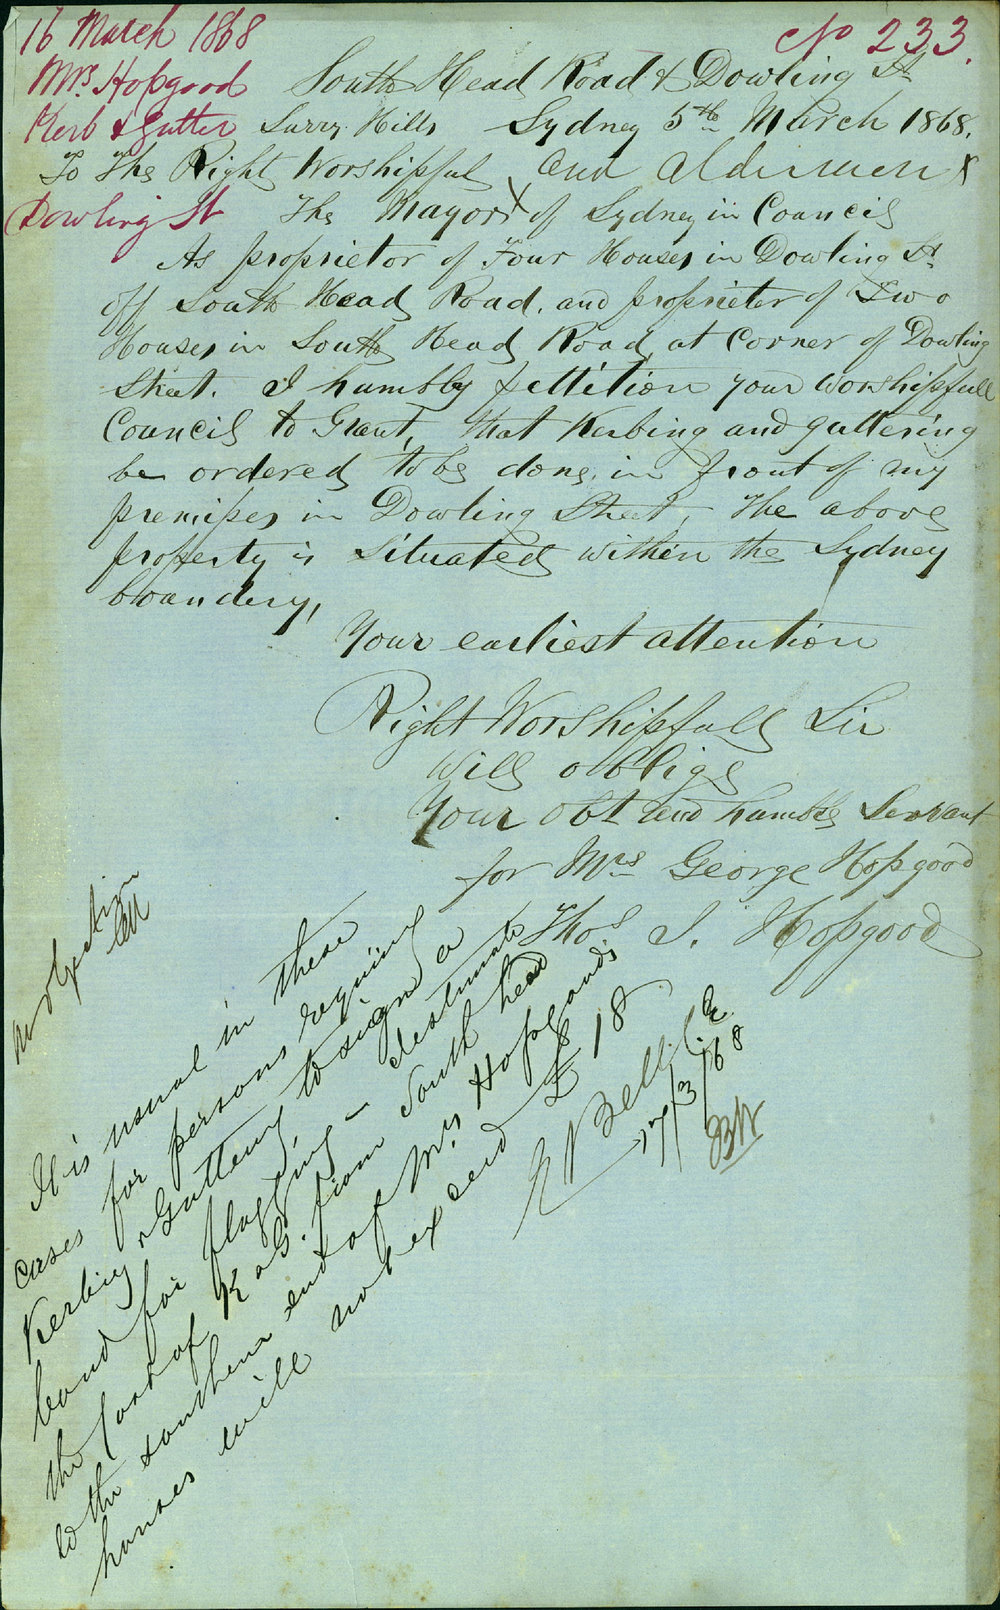 16 March 1868
No 233.
Mrs. Hopgood
Kerb & Gutter
Dowling St
South Head Road & Dowling St
Surry Hills Sydney 5th March 1868.
To The Right Worshipful and Aldermen x
The Mayor x of Sydney in Council
As proprietor of Four Houses in Dowling St
off South Head Road, and proprietor of Two
Houses in South Head Road, at Corner of Dowling
Street. I humbly pettition your Worshipfull
Council to Grant, that Kerbing and guttering
be ordered to be done, in front of my
premises in Dowling Street, The above
property is situated within the Sydney
boandery,
Your earliest attention
Right Worshipfull Sir
Will oblige
Your Obt and humble Servant
for Mrs George Hopgood
Thos J. Hopgood
no objection
It is usual in these
cases for persons requiring
Kerbing & Guttering, to sign a
bond for flagging – estimate
the cost of K & G. from South head
to the southern end of Mrs Hopgoods
houses will not exceed £18
E Bell C.E.
17/3/68